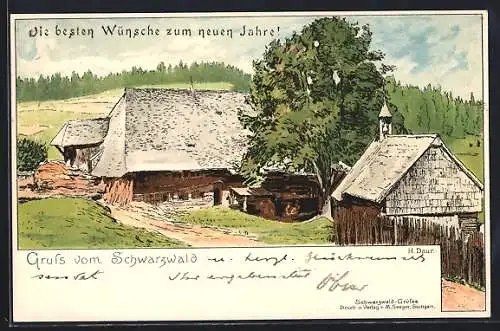 Die besten Wünsche zum neuen Jahre!
H. Daur.
Gruß vom Schwarzwald u. herzl. Glückwunsch
sendet Ihr ergebenster
Schwarzwald-Grüße
Druck u. Verlag v. M. Seeger, Stuttgart.